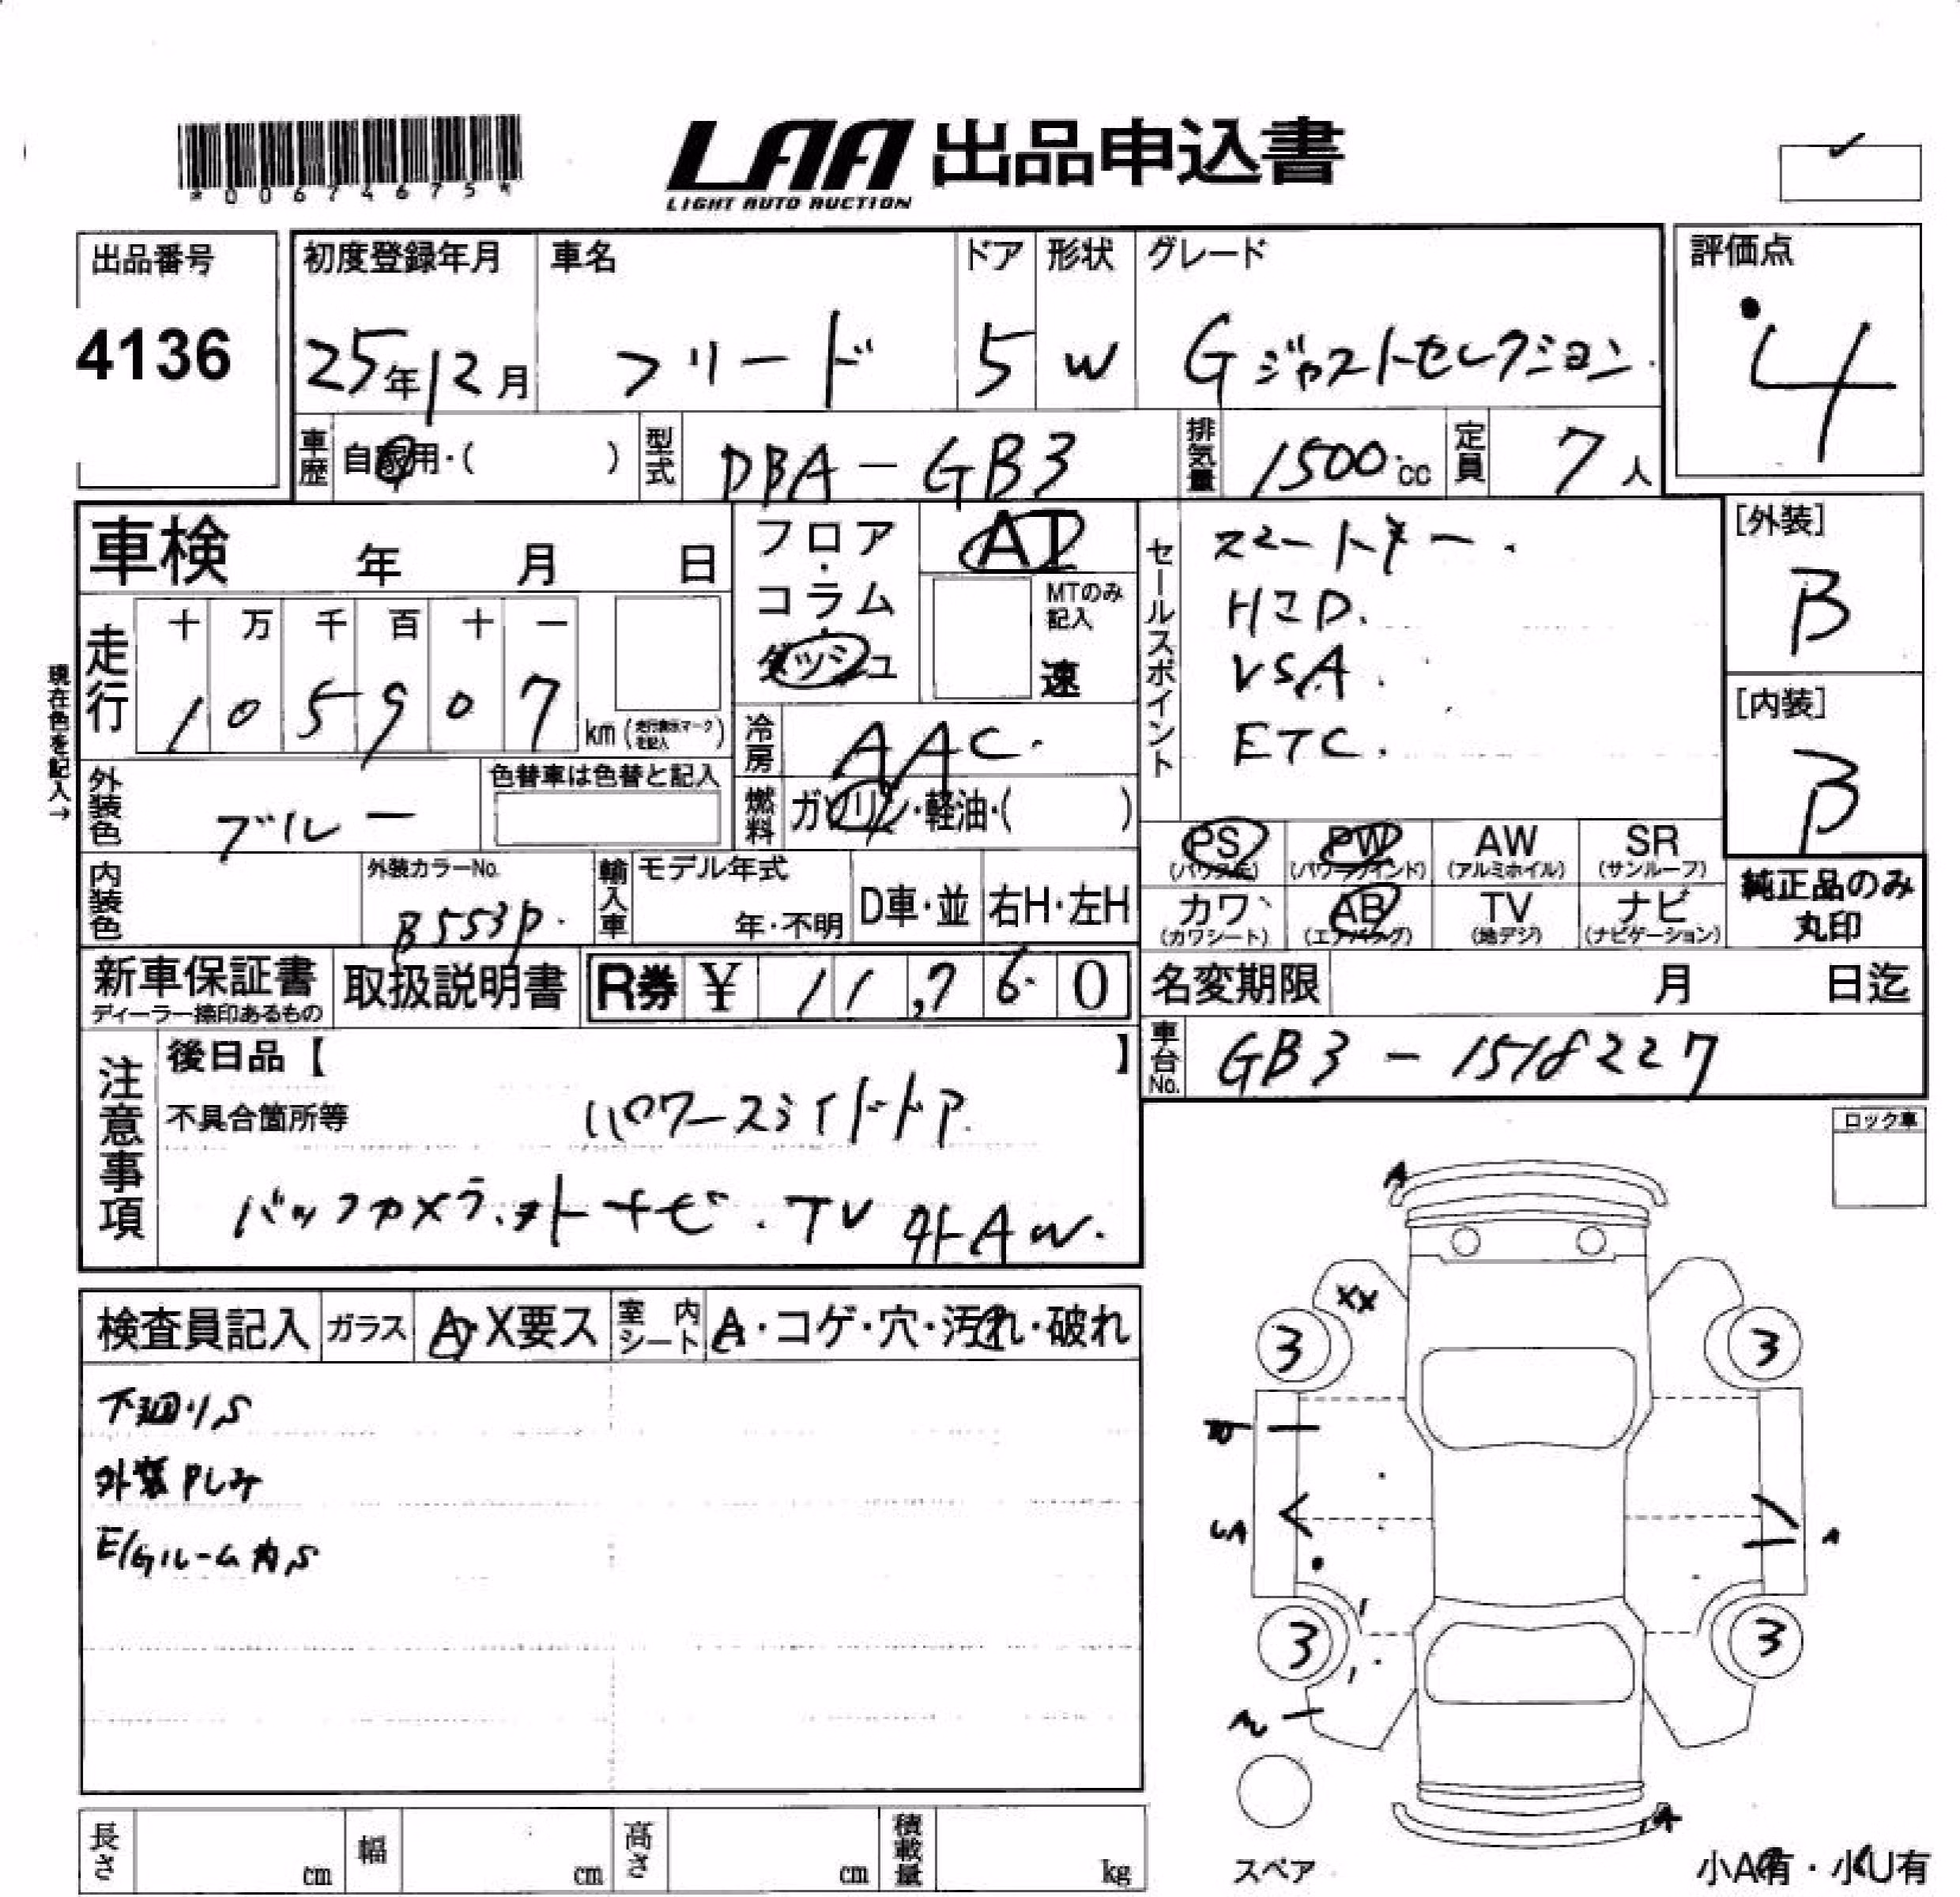 *00674675*
LAA 出品申込書
LIGHT AUTO AUCTION
出品番号
4136
初度登録年月 車名 ドア 形状 グレード
25年12月 フリード 5 W Gジャストセレクション
評価点
4
車歴 自家用・( ) 型式 DBA-GB3 排気量 1500cc 定員 7人
車検 年 月 日
フロア・コラム・ダッシュ
AT
MTのみ記入
速
セールスポイント
スマートキー.
HID.
VSA.
ETC.
[外装]
B
[内装]
B
現在色を記入→
走行 十 万 千 百 十 一
1 0 5 9 0 7 km (走行表示マークを記入)
冷房 AAC.
外装色 ブルー 色替車は色替と記入
燃料 ガソリン・軽油・( )
PS (パワステ) PW (パワーウインド) AW (アルミホイル) SR (サンルーフ)
カワ (カワシート) AB (エアバッグ) TV (地デジ) ナビ (ナビゲーション)
純正品のみ
丸印
内装色 外装カラーNo. B553P. 輸入車 モデル年式 年・不明 D車・並 右H・左H
新車保証書 ディーラー捺印あるもの 取扱説明書 R券 ¥ 11,760
名変期限 月 日迄
車台No. GB3-1518227
注意事項
後日品【 】
不具合箇所等 パワースライドドア.
バックカメラ.外ナビ.TV 外AW.
ロック車
検査員記入 ガラス A・X要ス 室内シート A・コゲ・穴・汚れ・破れ
下廻りS
外装押しみ
E/Gルーム内S
A
XX
3 3
A
3 3
A
スペア
小A有・小U有
長さ cm 幅 cm 高さ cm 積載量 kg